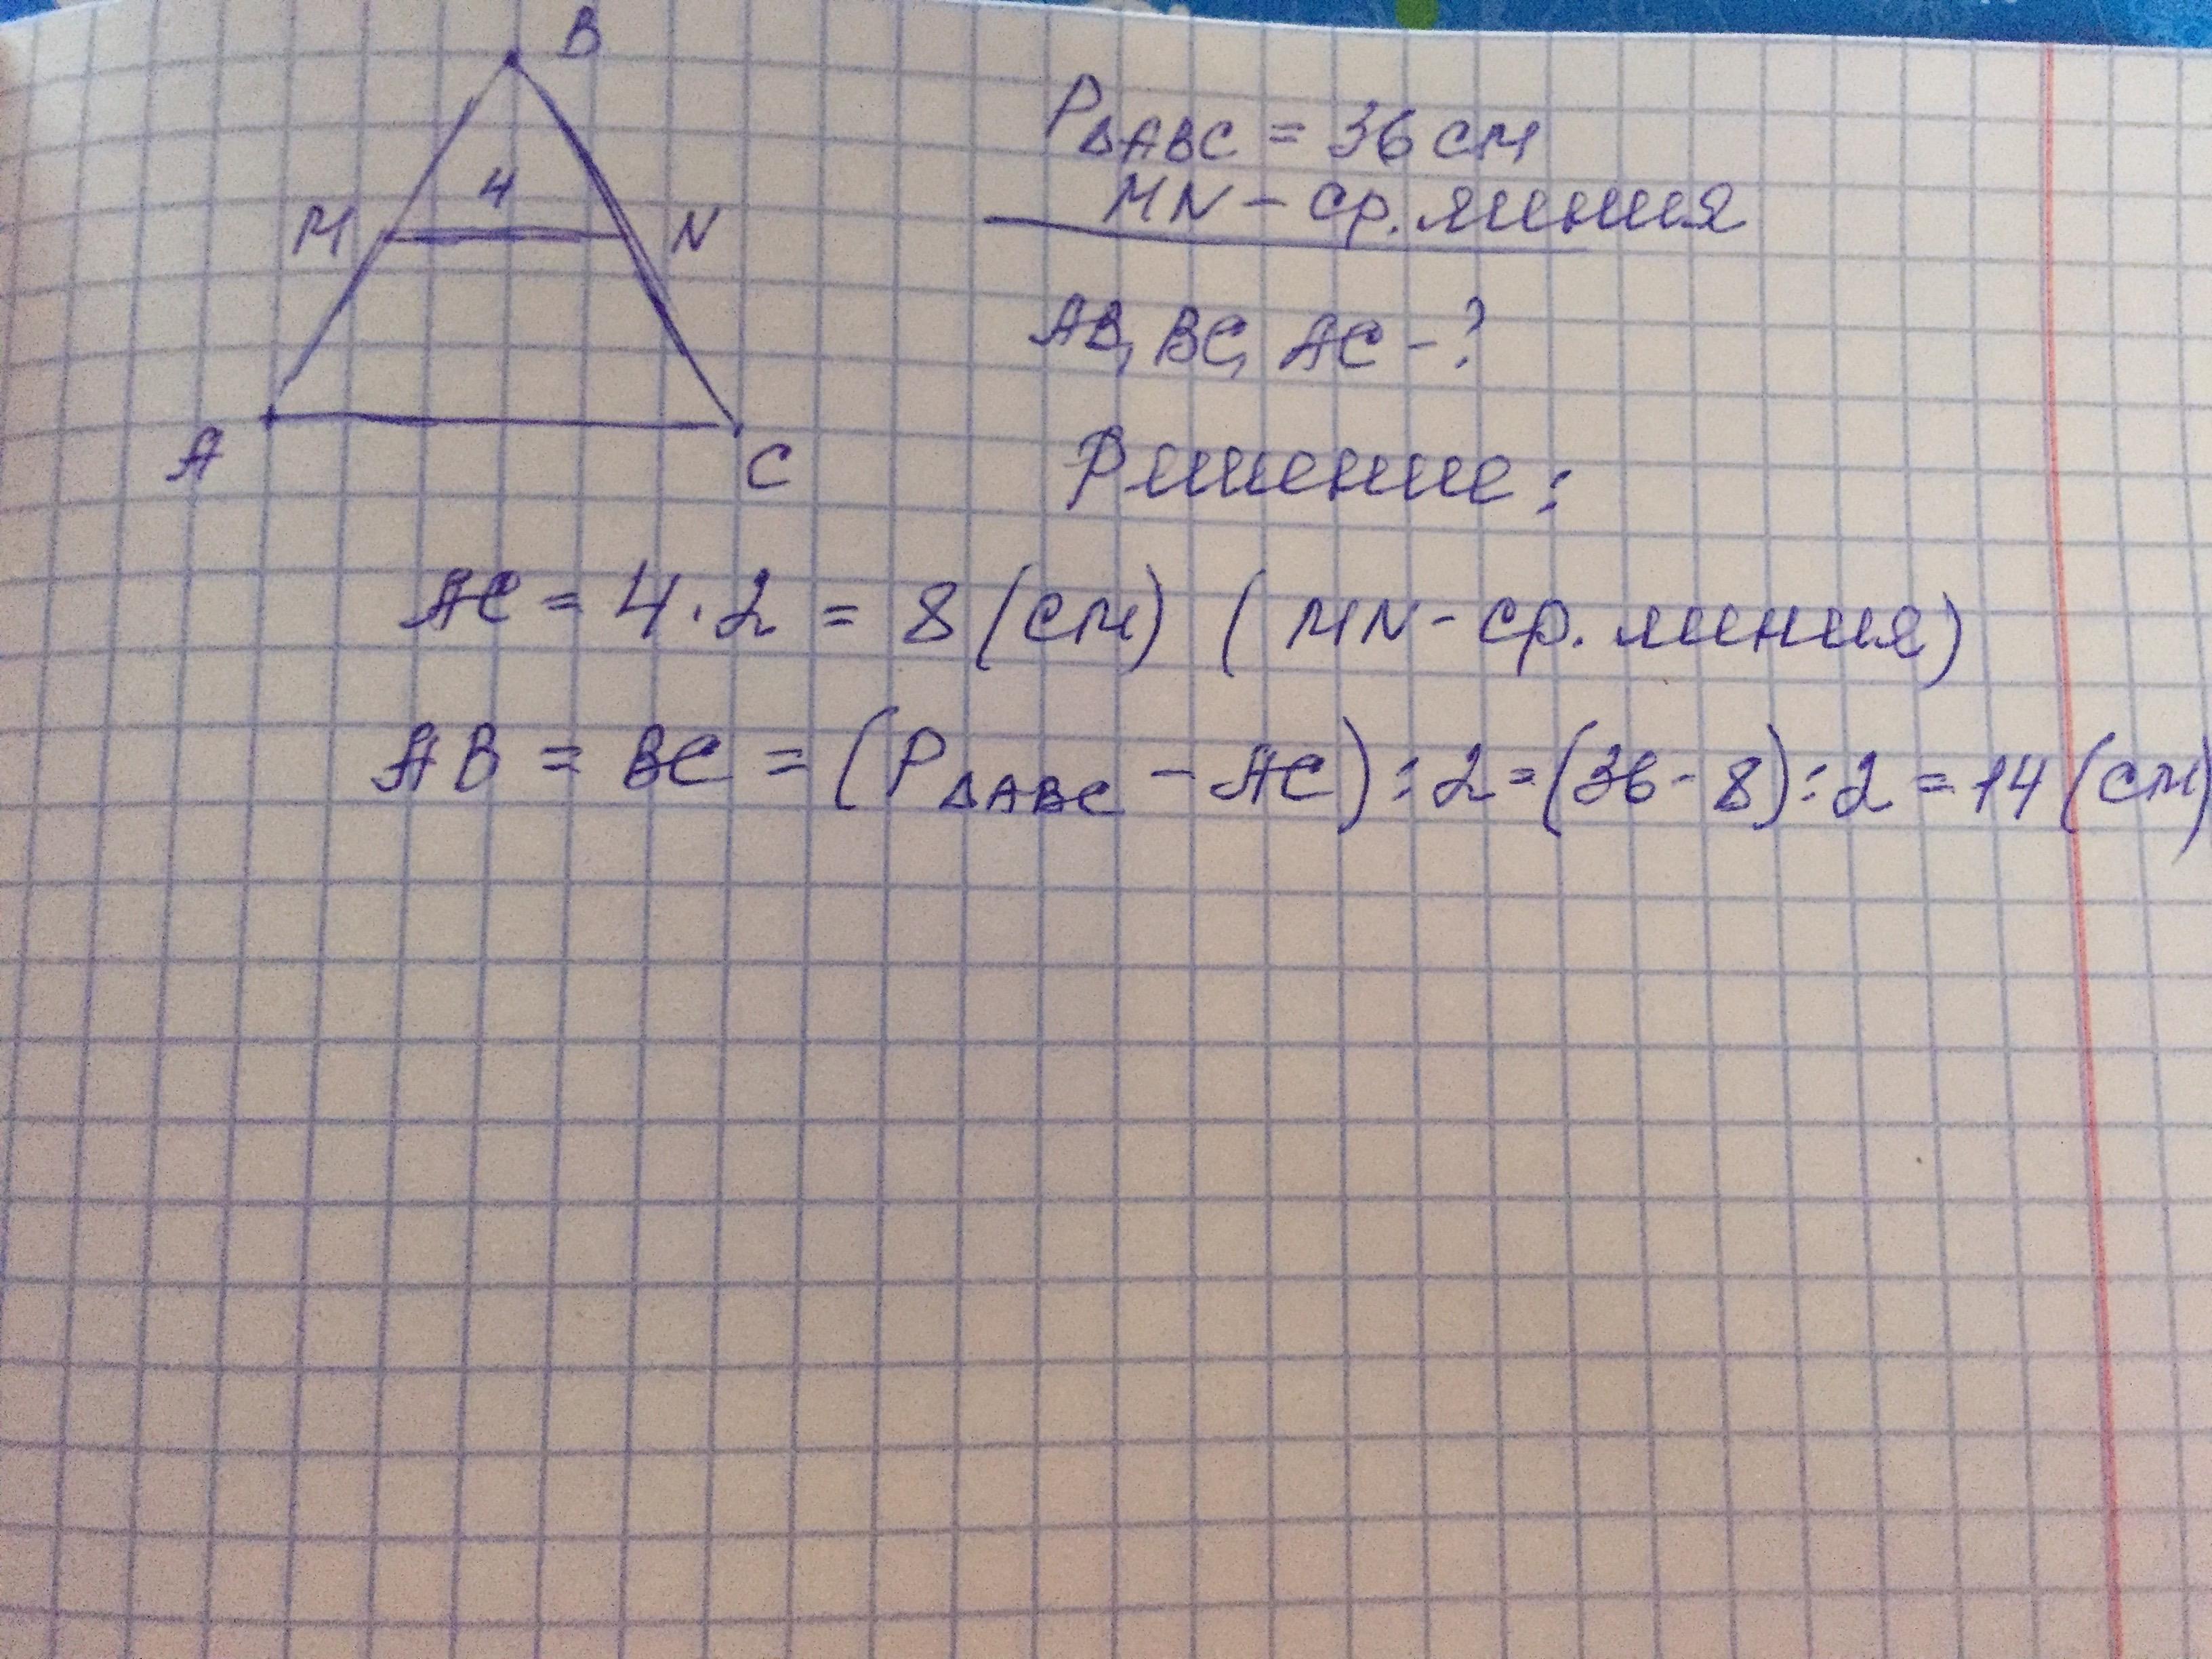 B
4
M N
A C
P△ABC = 36 см
MN – ср. линия
AB, BC, AC – ?
Решение:
AC = 4 · 2 = 8 (см) (MN – ср. линия)
AB = BC = (P△ABC – AC) : 2 = (36 - 8) : 2 = 14 (см)